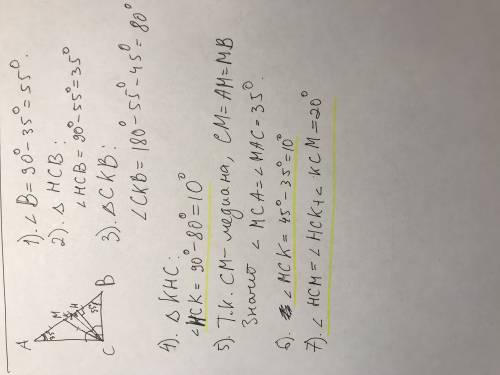 A
M
K
H
B
C
35°
55°
1). ∠B = 90° - 35° = 55°.
2). △ HCB:
∠HCB = 90° - 55° = 35°
3). △CKB:
∠CKB = 180° - 55° - 45° = 80°
4). △ KHC:
∠HCK = 90° - 80° = 10°
5). Т.к. CM - медиана, CM = AM = MB
Значит ∠ MCA = ∠MAC = 35°.
6). ∠ MCK = 45° - 35° = 10°
7). ∠ HCM = ∠HCK + ∠ KCM = 20°